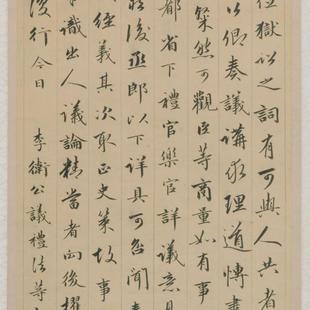 獄以之詞有可與人共者
以卿奏議講求理道博盡
粲然可觀臣等商量如有事
都省下禮官樂官詳議意見
後丞郎以下詳具可否聞奏
經義其次取正史策故事
識出人議論精當者向後擢
復行今日 李衛公議禮法等